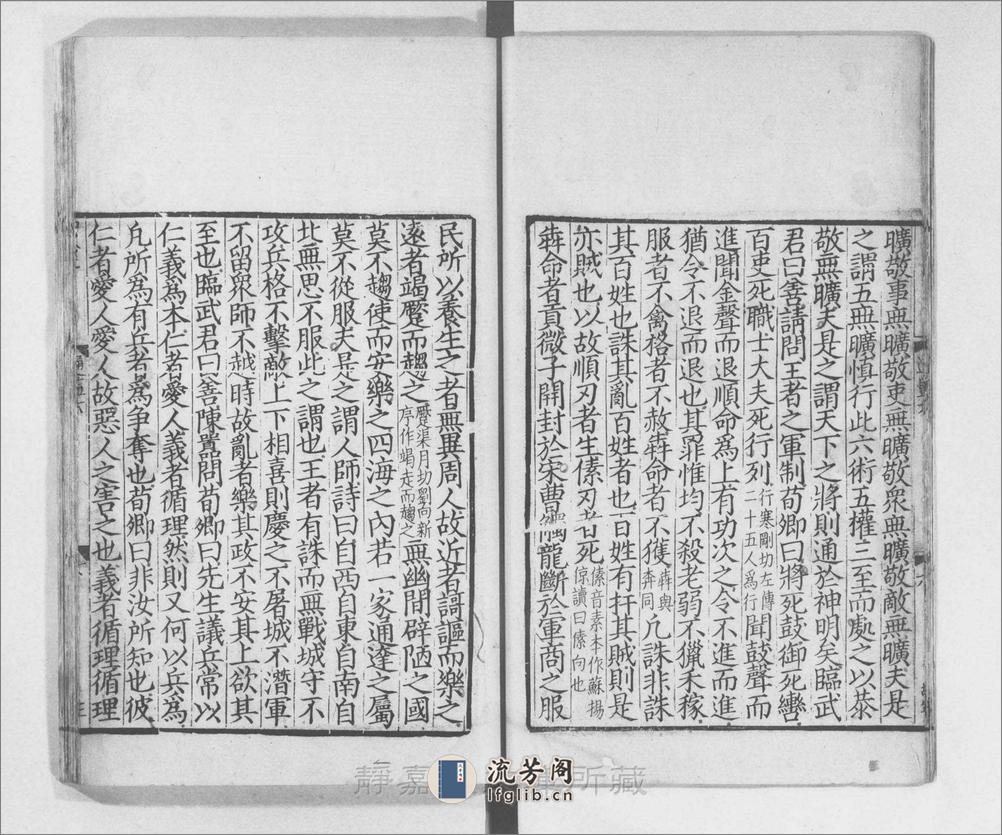 曠敬事無曠敬吏無曠敬衆無曠敬敵無曠夫是
之謂五無曠慎行此六術五權三至而處之以恭
敬無曠夫是之謂天下之將則通於神明矣臨武
君曰善請問王者之軍制荀卿曰將死鼓御死轡
百吏死職士大夫死行列行寒剛切左傳二十五人爲行聞鼓聲而
進聞金聲而退順命爲上有功次之令不進而進
猶令不退而退也其罪惟均不殺老弱不獵禾稼
服者不禽格者不赦犇命者不獲犇與奔同凡誅非誅
其百姓也誅其亂百姓者也百姓有扞其賊則是
亦賊也以故順刃者生傃刃者死傃音素本作蘇揚倞讀曰傃向也
犇命者貢微子開封於宋曹觸龍斷於軍商之服
民所以養生之者無異周人故近者謌謳而樂之
遠者竭蹷而趨之蹷渠月切劉向新序作竭走而趨之無幽閒辟陋之國
莫不趨使而安樂之四海之內若一家通達之屬
莫不從服夫是之謂人師詩曰自西自東自南自
北無思不服此之謂也王者有誅而無戰城守不
攻兵格不擊敵上下相喜則慶之不屠城不潛軍
不留衆師不越時故亂者樂其政不安其上欲其
至也臨武君曰善陳囂問荀卿曰先生議兵常以
仁義為本仁者愛人義者循理然則又何以兵為
凡所為有兵者為爭奪也荀卿曰非汝所知也彼
仁者愛人愛人故惡人之害之也義者循理循理
靜嘉
所藏
流芳阁
lfglib.cn